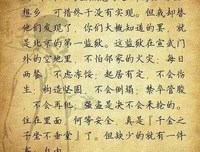 想乡，可惜终于没有实现。但我却替
他们发现了，你们大概知道的罢，就
是北京的第一监狱。这监狱在宣武门
外的空地里，不怕邻家的火灾；每日
两餐，不虑冻馁；起居有定，不会伤
生；构造坚固，不会倒塌；禁卒管着
，不会再犯罪；强盗是决不会来抢的。
住在里面，何等安全，真真是“千金之
子坐不垂堂”了。但缺少的就有一件
事：自由。